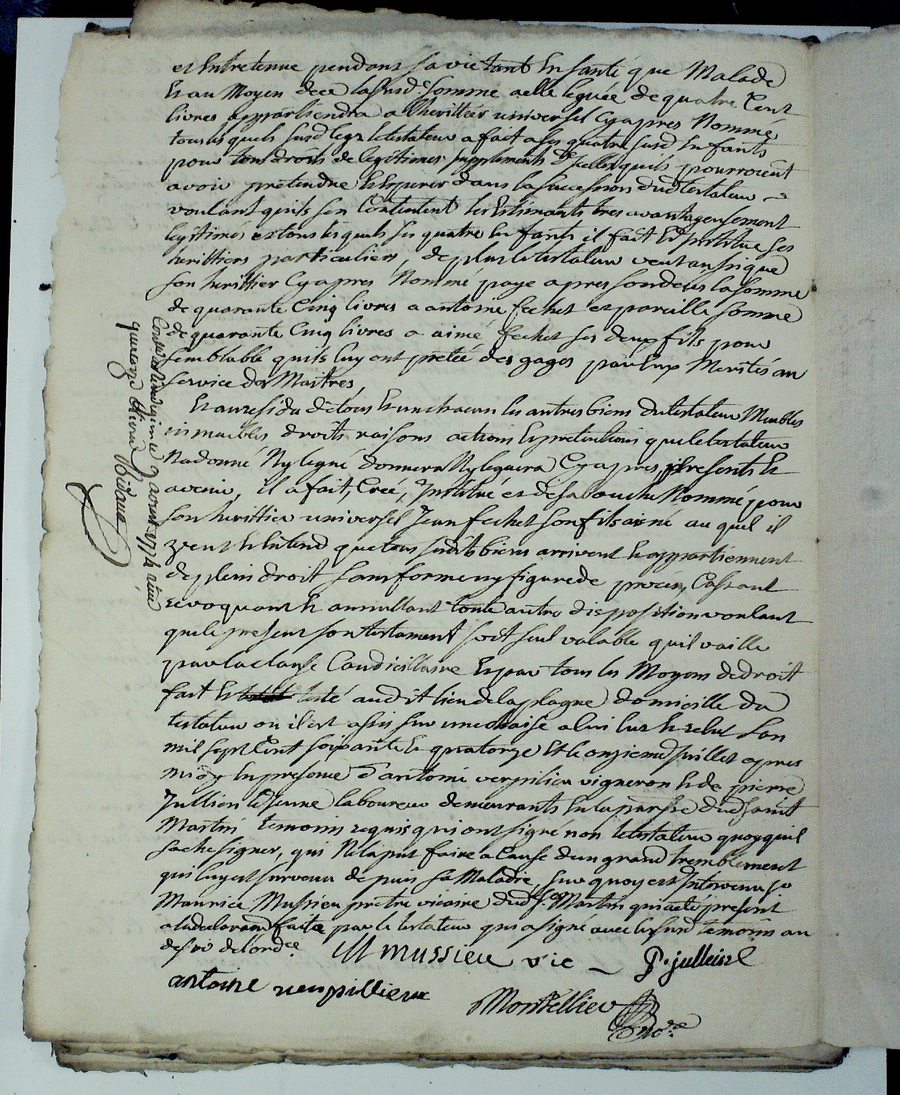 et Entretenue pendant sa vie tant En santé que Malade
Et au Moyen dece la susd.e somme aelle leguée de quatre Cent
livres appartiendra a lherittier universel Cy apres Nommé
tous lesquels susd legz le testateur a fait a ses quatre susd En fants
pour tous droits de legitimes supplements d'Icelles quils pourroient
avoir pretendre Et Esperer dans la succession dud testateur
voulant quils sen Contentent les Estimants tres avantageusement
legitimes et tous lesquels ses quatre En fants il fait Et Institue ses
herittiers particuliers, de plus le testateur veut aussi que
son herittier Cy apres Nommé paye apres son deces la somme
de quarante Cinq livres a antoine fechet et pareille somme
de quarante Cinq livres a aimé fechet ses deux fils pour
semblable quils luy ont pretée des gages par Eux Merités au
service des Maitres
Et au residu de tous Et un chacuns les autres biens du testateur Meubles
immeubles droits raisons actions Et pretentions que le testateur
Na donné Ny legué donnera Ny leguera Cy apres, presents Et
avenir, il a fait, Créé, Institué et de sa bouche Nommé pour
son herittier universel Jean fechet son fils aisné au quel il
veut Et Entend que tous susdits biens arrivent Et appartiennent
de plein droit sans forme ny figure de procez, Cassant
revoquant Et annullant toute autre disposition voulant
que le present son testament soit seul valable quil vaille
par la clause Codicillaire Et par tous les Moyens de droit
fait Et testé audit lieu de la plagne domicille du
testateur ou il est assis sur une chaise a lui lu Et relu Lan
mil sept Cent soixante Et quatorze Et le onzieme Juillet apres
midy En presence d'antoine verpilieu vigneron Et de pierre
Jullien le Jeune laboureur demeurants En la parsse dud saint
Martin temoins requis qui ont signé non le testateur quoyquil
sache signer, qui Ne la put faire a Cause dun grand tremblement
qui luy est survenu depuis sa Maladie, sur quoy est Intervenu sr
Maurice Mussieu pretre vicaire dud St Martin qui a eté present
a la declaraon faite par le testateur qui a signé avec lesusd temoins au
desir de lord.ce
M mussieu vic
P. jullein
antoine verpillieux
Montellier
No.re